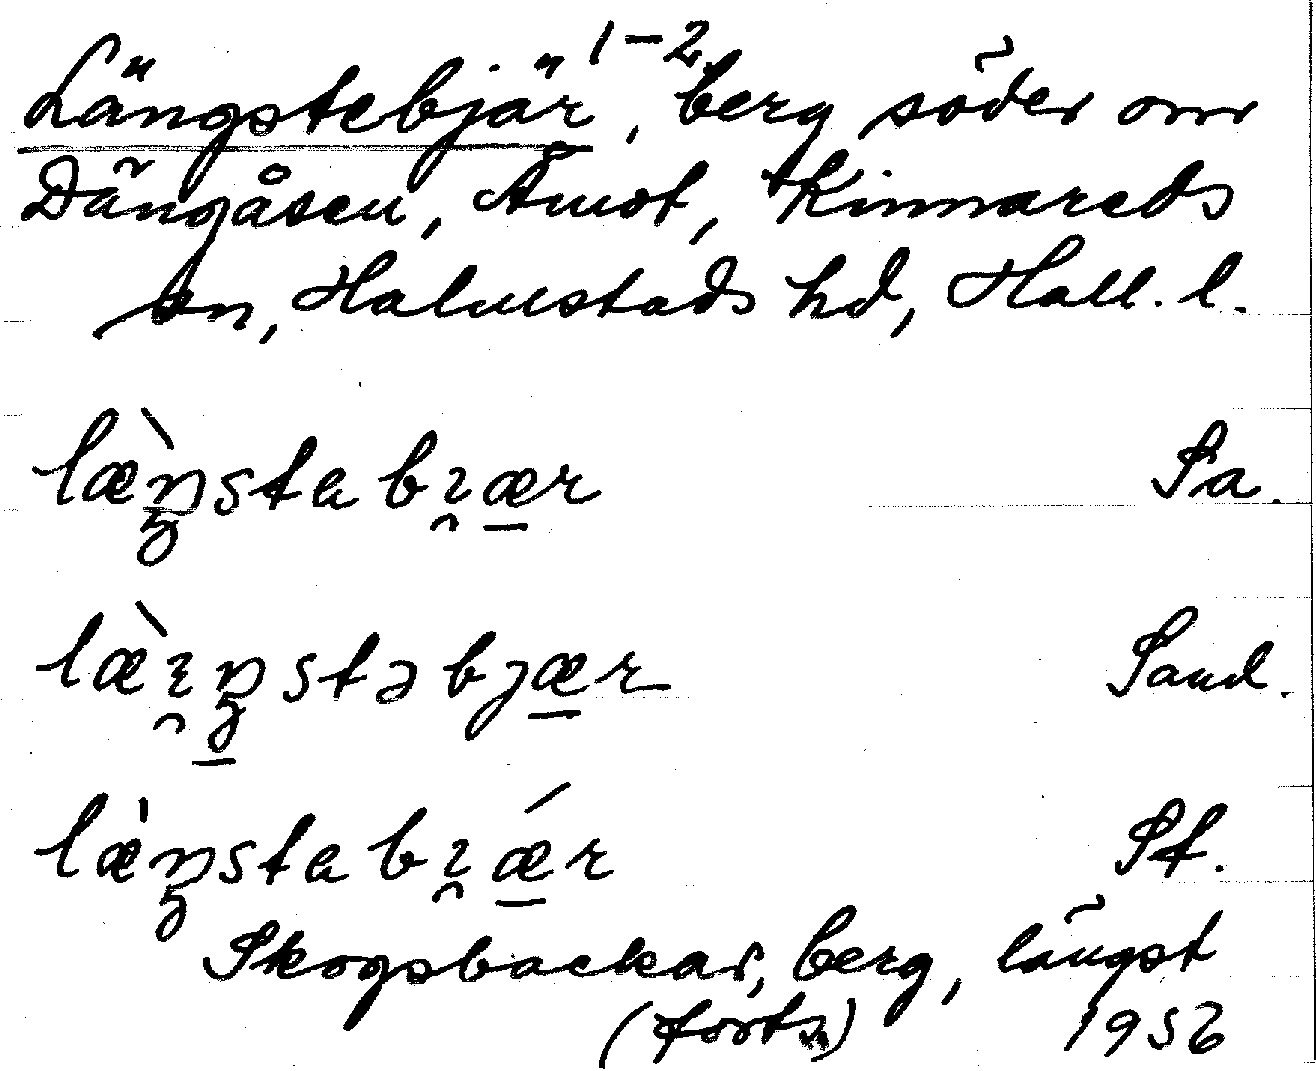 Längstebjär 1-2, berg söder om
Dängåsen, Åmot, Kinnareds
sn, Halmstads hd, Hall. l.
læ̀ŋsta bı̯æ̠r Sa.
læ̀ı̯ŋ̠stəbjæ̠r Sand.
læ̍ŋsta bı̯ǽ̠r St.
Skogsbackar, berg, längst
(forts.) 1956